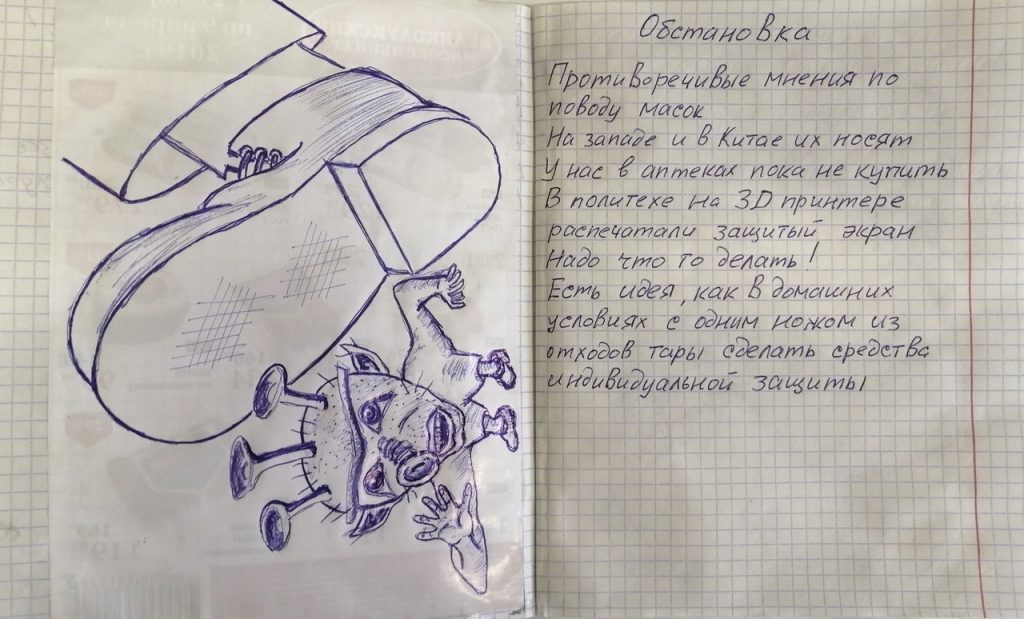 Обстановка
Противоречивые мнения по
поводу масок
На западе и в Китае их носят
У нас в аптеках пока не купить
В политехе на 3D принтере
распечатали защитый экран
Надо что то делать!
Есть идея, как в домашних
условиях с одним ножом из
отходов тары сделать средства
индивидуальной защиты